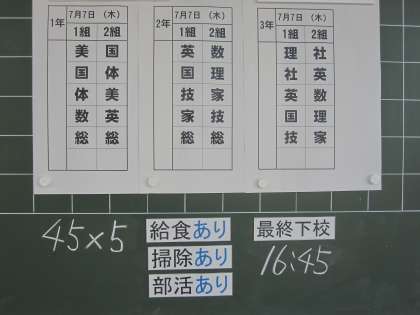 1年 7月7日 (木)
1組 2組
美 国
国 体
体 美
数 英
総 総
2年 7月7日 (木)
1組 2組
英 数
国 理
技 家
家 技
総 総
3年 7月7日 (木)
1組 2組
理 社
社 英
英 数
国 理
技 家
45×5
給食あり
掃除あり
部活あり
最終下校
16:45